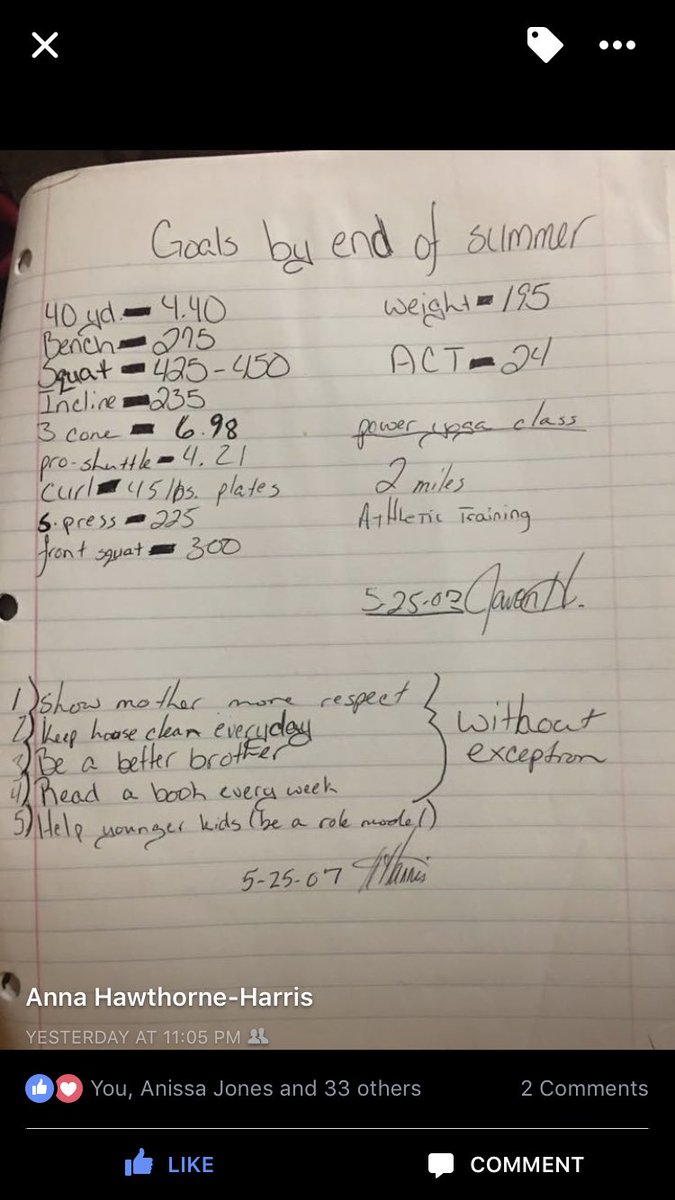 Goals by end of summer
40 yd. - 4.40
Bench - 275
Squat - 425-450
Incline - 235
3 cone - 6.98
pro-shuttle - 4.21
Curl - 45 lbs. plates
S. press - 225
front squat - 300
weight - 195
ACT - 24
power yoga class
2 miles
Athletic Training
5-25-07
1) Show mother more respect
2) Keep house clean everyday
3) Be a better brother
4) Read a book every week
5) Help younger kids (be a role model)
without
exception
5-25-07 Harris
Anna Hawthorne-Harris
YESTERDAY AT 11:05 PM
You, Anissa Jones and 33 others
2 Comments
LIKE
COMMENT